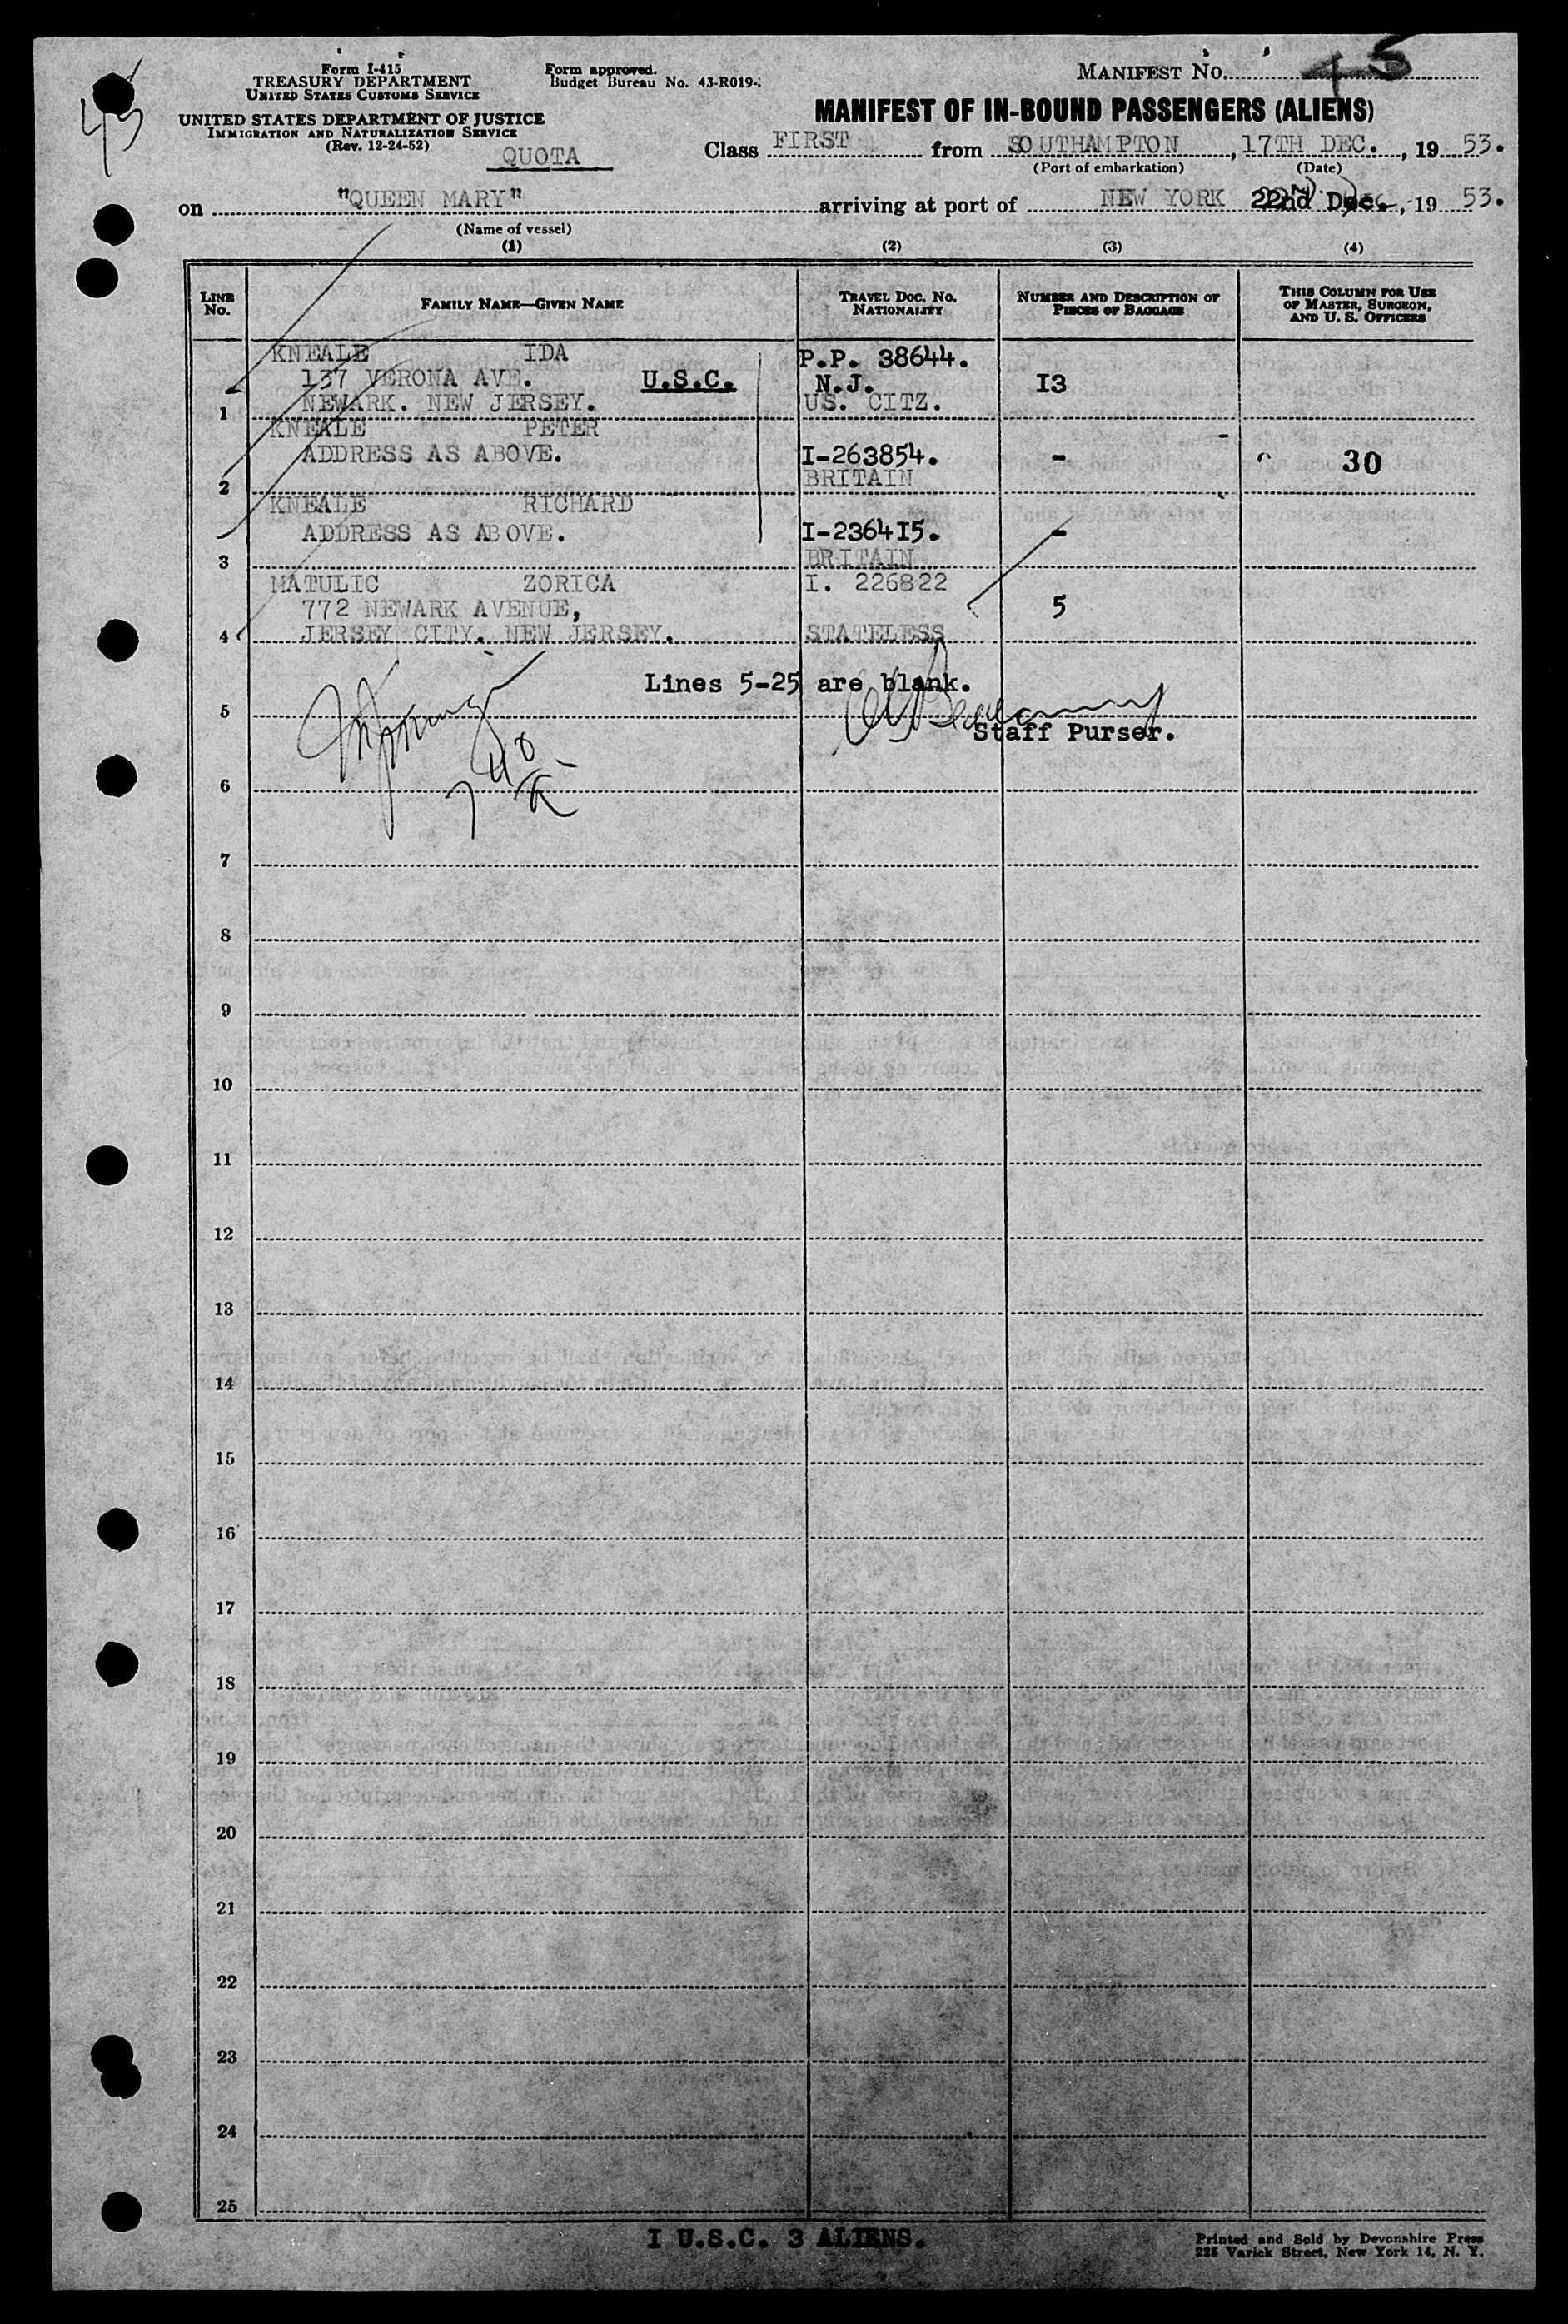 Form I-415
TREASURY DEPARTMENT
UNITED STATES CUSTOMS SERVICE
UNITED STATES DEPARTMENT OF JUSTICE
IMMIGRATION AND NATURALIZATION SERVICE
(Rev. 12-24-52)
Form approved.
Budget Bureau No. 43-R019-
45
MANIFEST NO. 45
MANIFEST OF IN-BOUND PASSENGERS (ALIENS)
QUOTA
Class FIRST from SOUTHAMPTON, 17TH DEC., 19 53.
(Port of embarkation) (Date)
on "QUEEN MARY" arriving at port of NEW YORK 22nd Dec., 19 53.
(Name of vessel)
(1) (2) (3) (4)
LINE NO.
FAMILY NAME—GIVEN NAME
TRAVEL DOC. NO. NATIONALITY
NUMBER AND DESCRIPTION OF PIECES OF BAGGAGE
THIS COLUMN FOR USE OF MASTER, SURGEON, AND U. S. OFFICERS
KNEALE IDA P.P. 38644.
137 VERONA AVE. U.S.C. N.J. I3
1 NEWARK. NEW JERSEY. US. CITZ.
KNEALE PETER
ADDRESS AS ABOVE. I-263854. - 30
2 BRITAIN
KNEALE RICHARD
ADDRESS AS ABOVE. I-2364I5. -
3 BRITAIN
MATULIC ZORICA I. 226822
772 NEWARK AVENUE, 5
4 JERSEY CITY. NEW JERSEY. STATELESS
Lines 5-25 are blank.
5 Staff Purser.
6
7
8
9
10
11
12
13
14
15
16
17
18
19
20
21
22
23
24
25
I U.S.C. 3 ALIENS.
Printed and Sold by Devonshire Press
225 Varick Street, New York 14, N. Y.